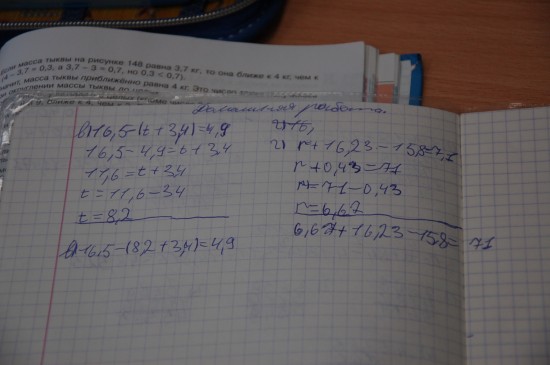 Если масса тыквы на рисунке 148 равна 3,7 кг, то она ближе к 4 кг, чем к
(4 − 3,7 = 0,3, а 3,7 − 3 = 0,7, но 0,3 < 0,7).
значит, масса тыквы приближённо равна 4 кг. Это число
округлении массы тыквы до целых
Домашняя работа.
в) 16,5-(t+3,4)=4,9
16,5-4,9=t+3,4
11,6=t+3,4
t=11,6-3,4
t=8,2
в) 16,5-(8,2+3,4)=4,9
г) 15,
г) r+16,23-15,8=7,1
r+0,43=7,1
r=7,1-0,43
r=6,67
6,67+16,23-15,8=7,1